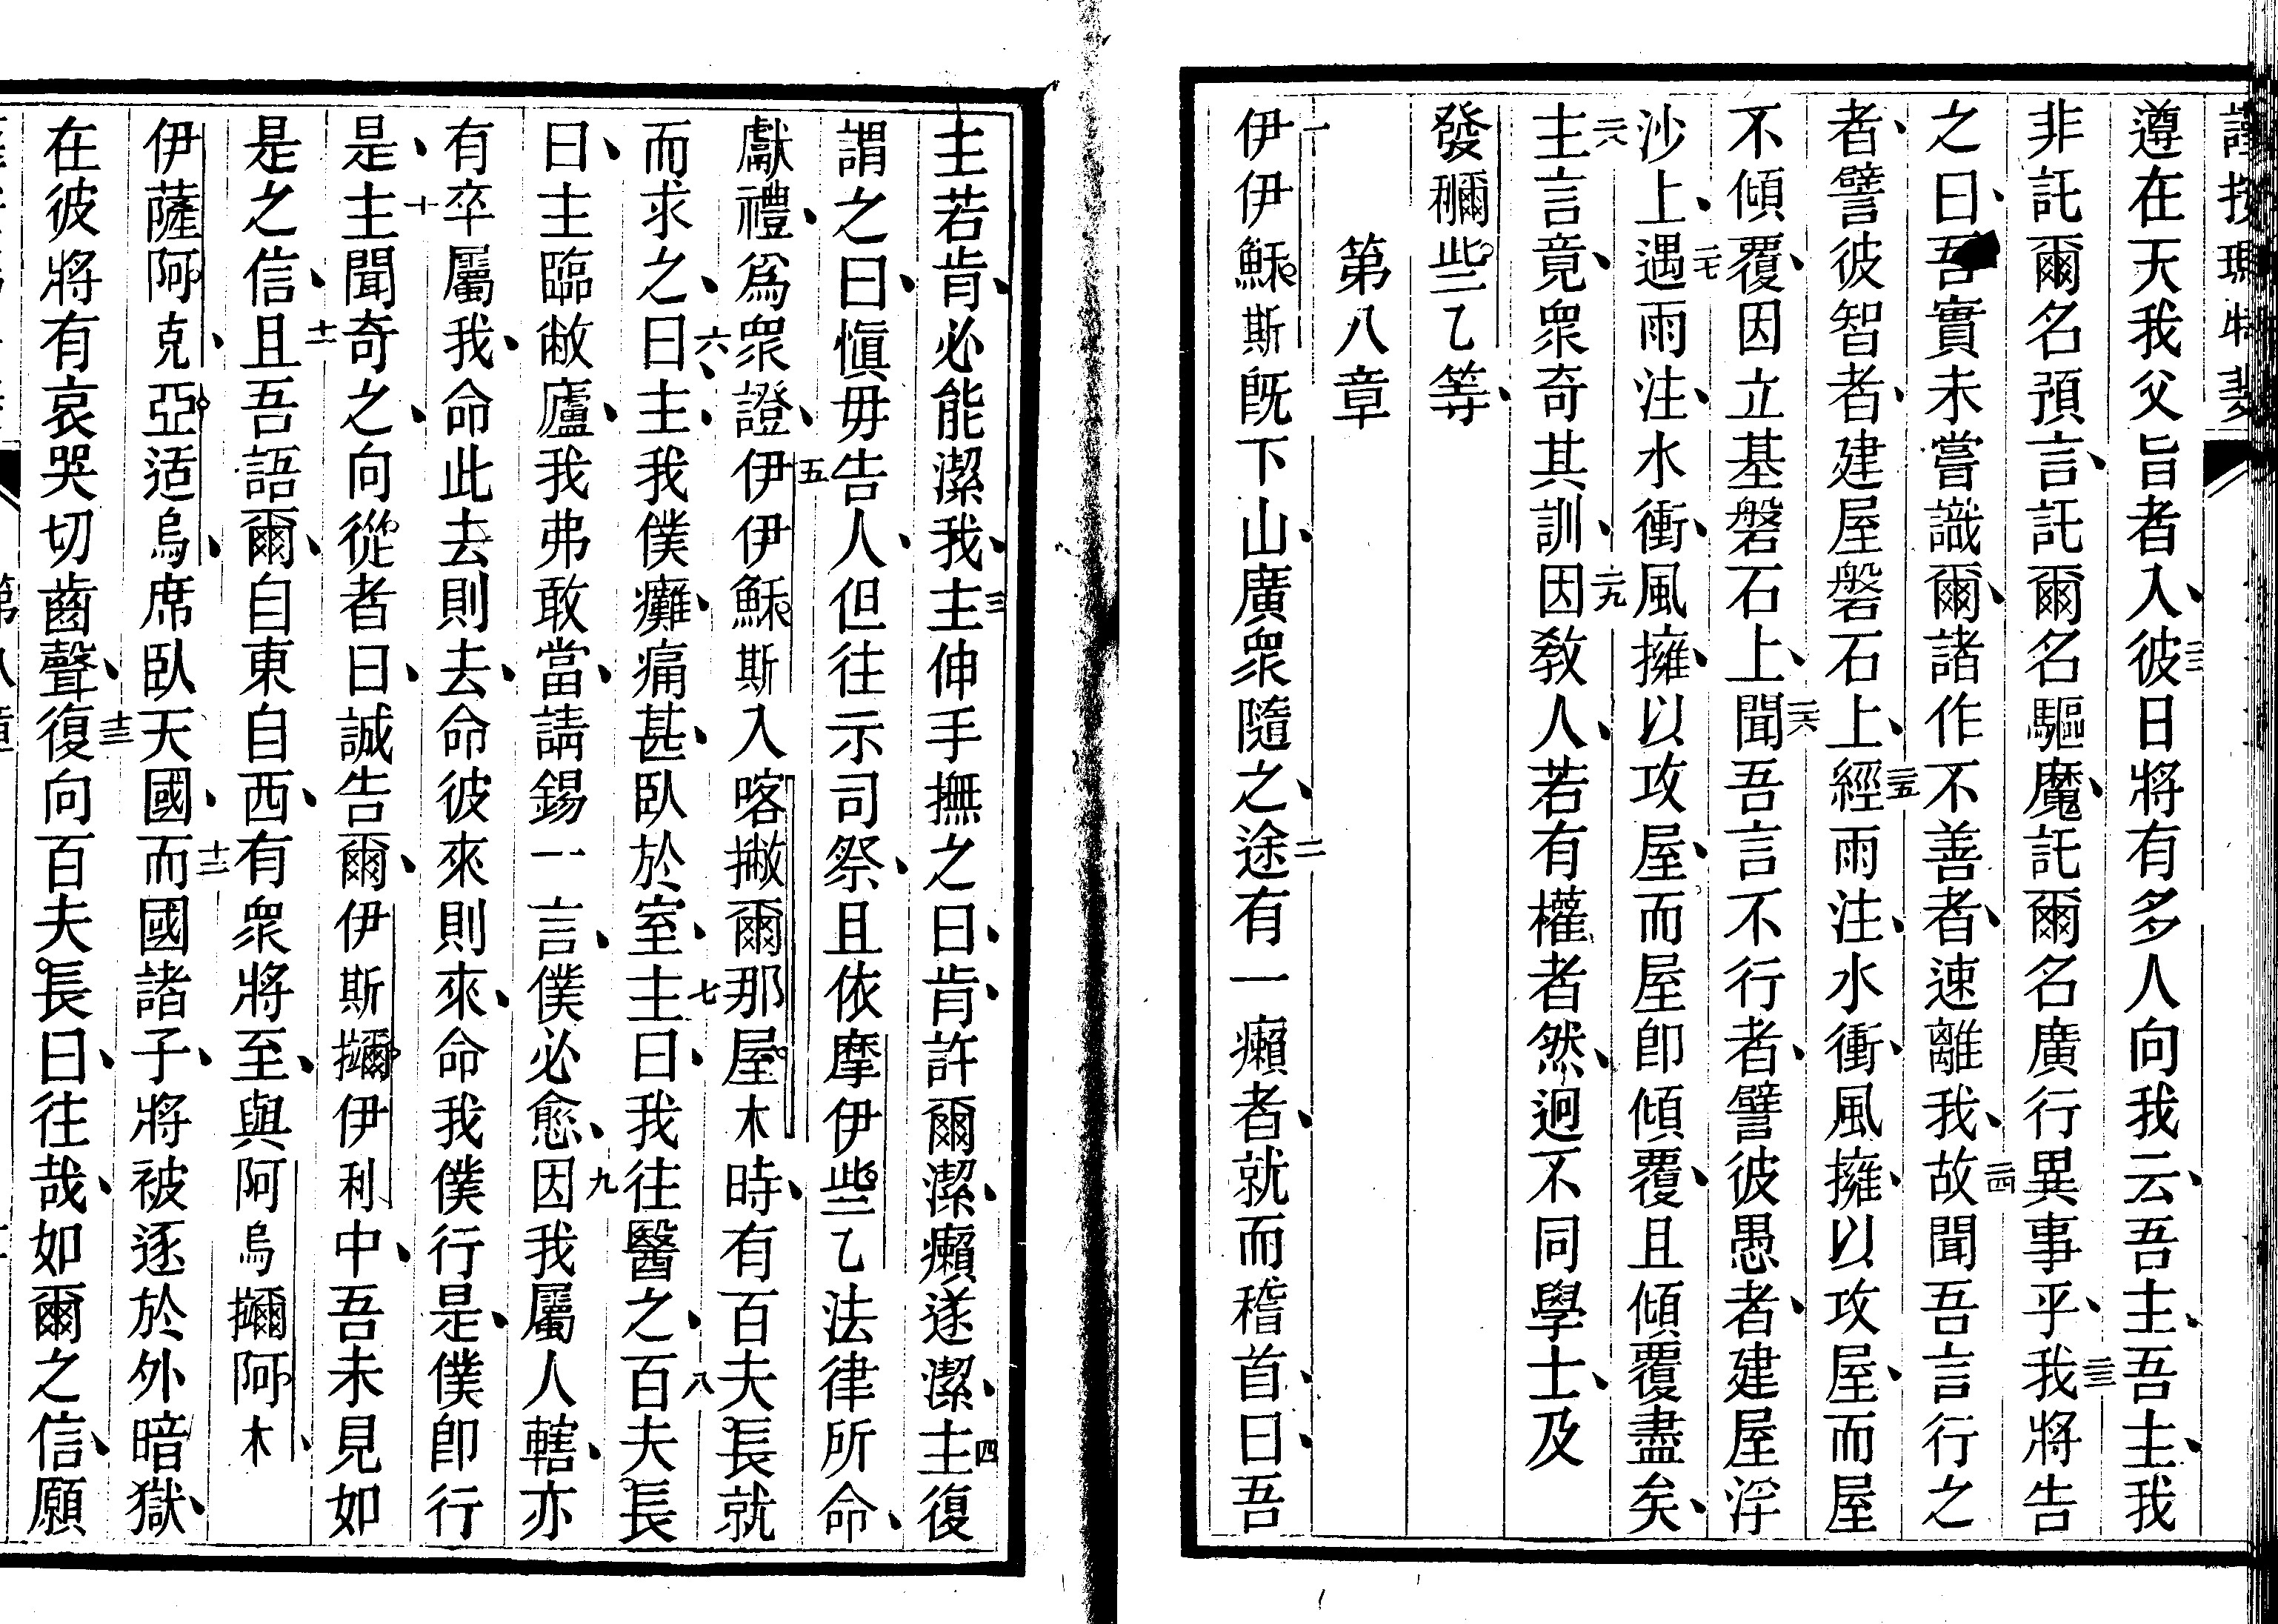 遵在天我父旨者入、彼日將有多人向我云、吾主、吾主、我
二三
非託爾名預言、託爾名驅魔、託爾名廣行異事乎、我將告
二三
之曰、吾實未嘗識爾、諸作不善者、速離我、故聞吾言行之
二四
者、譬彼智者、建屋磐石上、經雨注、水衝、風擁、以攻屋、而屋
二五
不傾覆、因立基磐石上、聞吾言不行者、譬彼愚者、建屋浮
二六
沙上、遇雨注、水衝、風擁、以攻屋、而屋卽傾覆、且傾覆盡矣、
二七
主言竟、衆奇其訓、因敎人、若有權者然、迥不同學士、及
二八 二九
發穪些乙等、
第八章
伊伊穌斯旣下山、廣衆隨之、途有一癩者、就而稽首、曰、吾
一 二
主若肯、必能潔我、主伸手撫之曰、肯、許爾潔、癩遂潔、主復
三 四
謂之曰、愼毋告人、但往示司祭、且依摩伊些乙法律所命、
獻禮、爲衆證、伊伊穌斯入喀撇爾那屋木時、有百夫長就
五
而求之、曰、主、我僕癱、痛甚、臥於室、主曰、我往醫之、百夫長
六 七 八
曰、主臨敝廬、我弗敢當、請錫一言、僕必愈、因我屬人轄、亦
九
有卒屬我、命此去則去、命彼來則來、命我僕行是、僕卽行
是、主聞奇之、向從者曰、誠吿爾、伊斯擟伊利中、吾未見如
十
是之信、且吾語爾、自東自西、有衆將至、與阿烏擟阿木、
十一
伊薩阿克、亞适烏、席臥天國、而國諸子、將被逐於外暗獄、
十二
在彼將有哀哭切齒聲、復向百夫長曰、往哉、如爾之信、願
十三